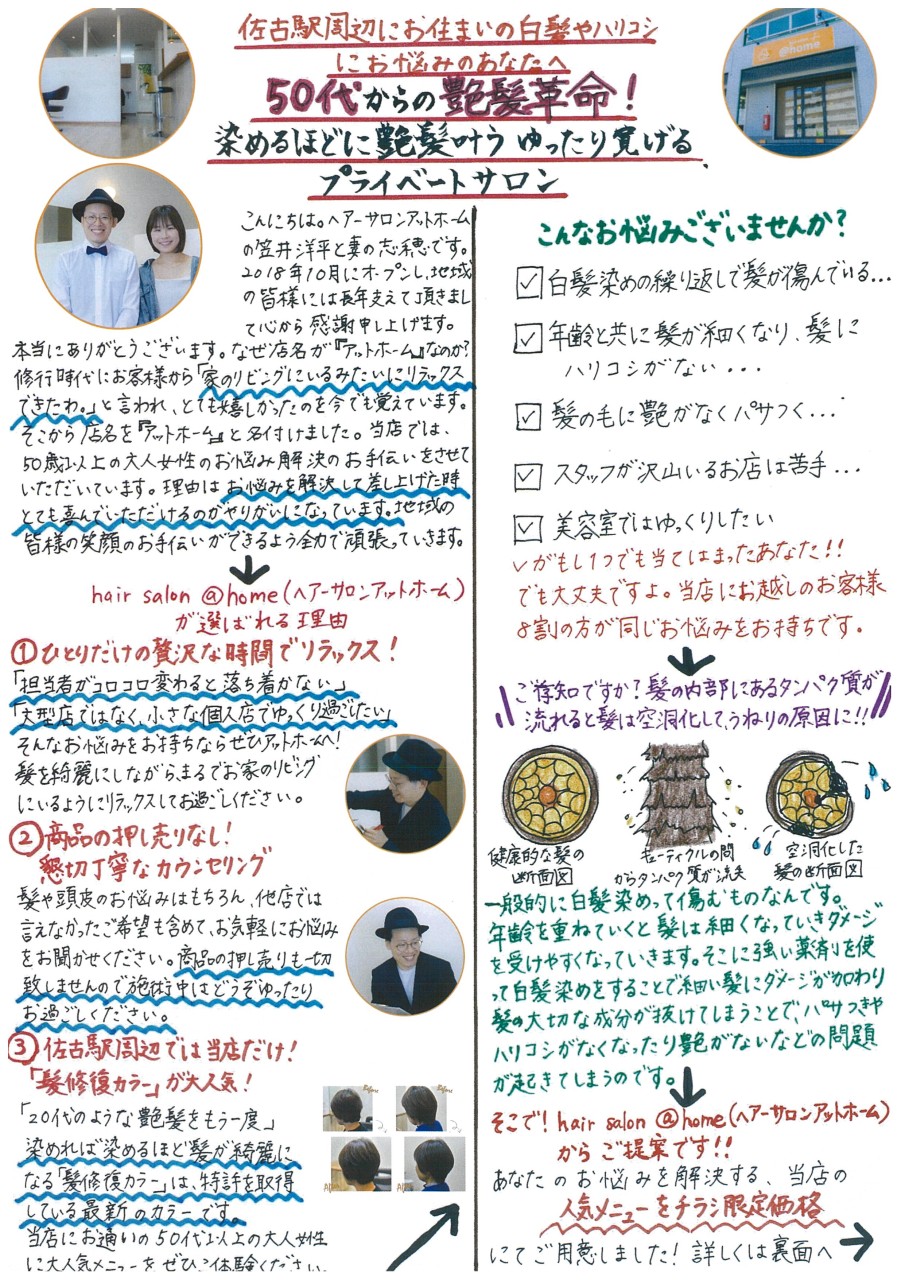 佐古駅周辺にお住まいの白髪やハリコシ
にお悩みのあなたへ
50代からの艶髪革命！
染めるほどに艶髪叶う ゆったり寛げる
プライベートサロン
@home
こんにちは。ヘアーサロンアットホーム
の笠井洋平と妻の志穂です。
2018年10月にオープンし、地域
の皆様には長年支えて頂きまし
て心から感謝申し上げます。
本当にありがとうございます。なぜ店名が『アットホーム』なのか?
修行時代にお客様から「家のリビングにいるみたいにリラックス
できたわ。」と言われ、とても嬉しかったのを今でも覚えています。
そこから店名を『アットホーム』と名付けました。当店では、
50歳以上の大人女性のお悩み解決のお手伝いをさせて
いただいています。理由はお悩みを解決して差し上げた時
とても喜んでいただけるのがやりがいになっています。地域の
皆様の笑顔のお手伝いができるよう全力で頑張っていきます。
hair salon @home(ヘアーサロンアットホーム)
が選ばれる理由
①ひとりだけの贅沢な時間でリラックス！
「担当者がコロコロ変わると落ち着かない」
「大型店ではなく、小さな個人店でゆっくり過ごしたい」
そんなお悩みをお持ちならぜひアットホームへ!
髪を綺麗にしながら、まるでお家のリビング
にいるようにリラックスしてお過ごしください。
②商品の押し売りなし!
懇切丁寧なカウンセリング
髪や頭皮のお悩みはもちろん、他店では
言えなかったご希望も含めて、お気軽にお悩み
をお聞かせください。商品の押し売りも一切
致しませんので施術中はどうぞゆったり
お過ごしください。
③佐古駅周辺では当店だけ!
「髪修復カラー」が大人気!
「20代のような艶髪をもう一度」
染めれば染めるほど髪が綺麗に
なる「髪修復カラー」は、特許を取得
している最新のカラーです。
当店にお通いの50代以上の大人女性
に大人気メニューをぜひご体験ください。
こんなお悩みございませんか?
☑白髪染めの繰り返しで髪が傷んでいる...
☑年齢と共に髪が細くなり、髪に
ハリコシがない...
☑髪の毛に艶がなくパサつく...
☑スタッフが沢山いるお店は苦手...
☑美容室ではゆっくりしたい
✓がもし1つでも当てはまったあなた!!
でも大丈夫ですよ。当店にお越しのお客様
8割の方が同じお悩みをお持ちです。
ご存知ですか?髪の内部にあるタンパク質が
流れると髪は空洞化して、うねりの原因に!!
健康的な髪の
断面図
キューティクルの間
からタンパク質が流失
空洞化した
髪の断面図
一般的に白髪染めって傷むものなんです。
年齢を重ねていくと髪は細くなっていきダメージ
を受けやすくなっていきます。そこに強い薬剤を使
って白髪染めをすることで細い髪にダメージが加わり
髪の大切な成分が抜けてしまうことで、パサつきや
ハリコシがなくなったり艶がないなどの問題
が起きてしまうのです。
そこで! hair salon @home(ヘアーサロンアットホーム)
からご提案です!!
あなたのお悩みを解決する、当店の
人気メニューをチラシ限定価格
にてご用意しました! 詳しくは裏面へ